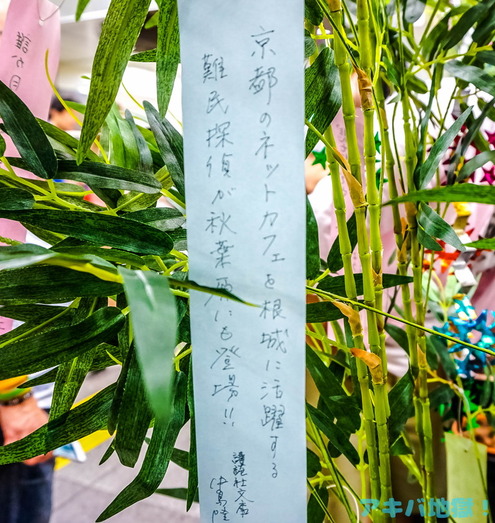 京都のネットカフェを根城に活躍する
難民探偵が秋葉原にも登場!!
講談社文庫
アキバ地獄!